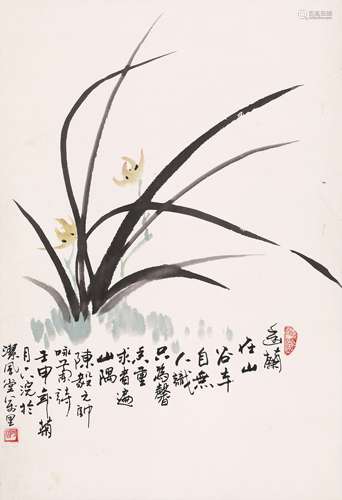 幽蘭
在山
谷本
自無
人識
只為馨
香重
求者遍
山隅
陳毅元帥
詠蘭詩
壬申年菊
月六浣於
潔風堂